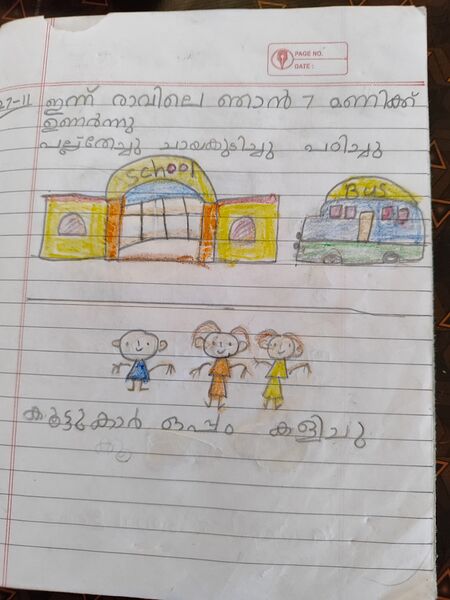 PAGE NO.
DATE :
27-11 ഇന്ന് രാവിലെ ഞാൻ 7 മണിക്ക്
ഉണർന്നു
പല്ല്തേച്ചു ചായകുടിച്ചു പഠിച്ചു
School
BUS
കൂട്ടുകാർ ഒപ്പം കളിച്ചു